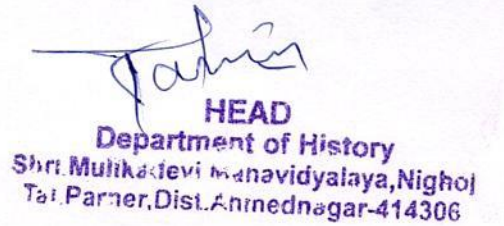 HEAD
Department of History
Shri.Mulikadevi Mahavidyalaya,Nighoj
Tal.Parner,Dist.Ahmednagar-414306